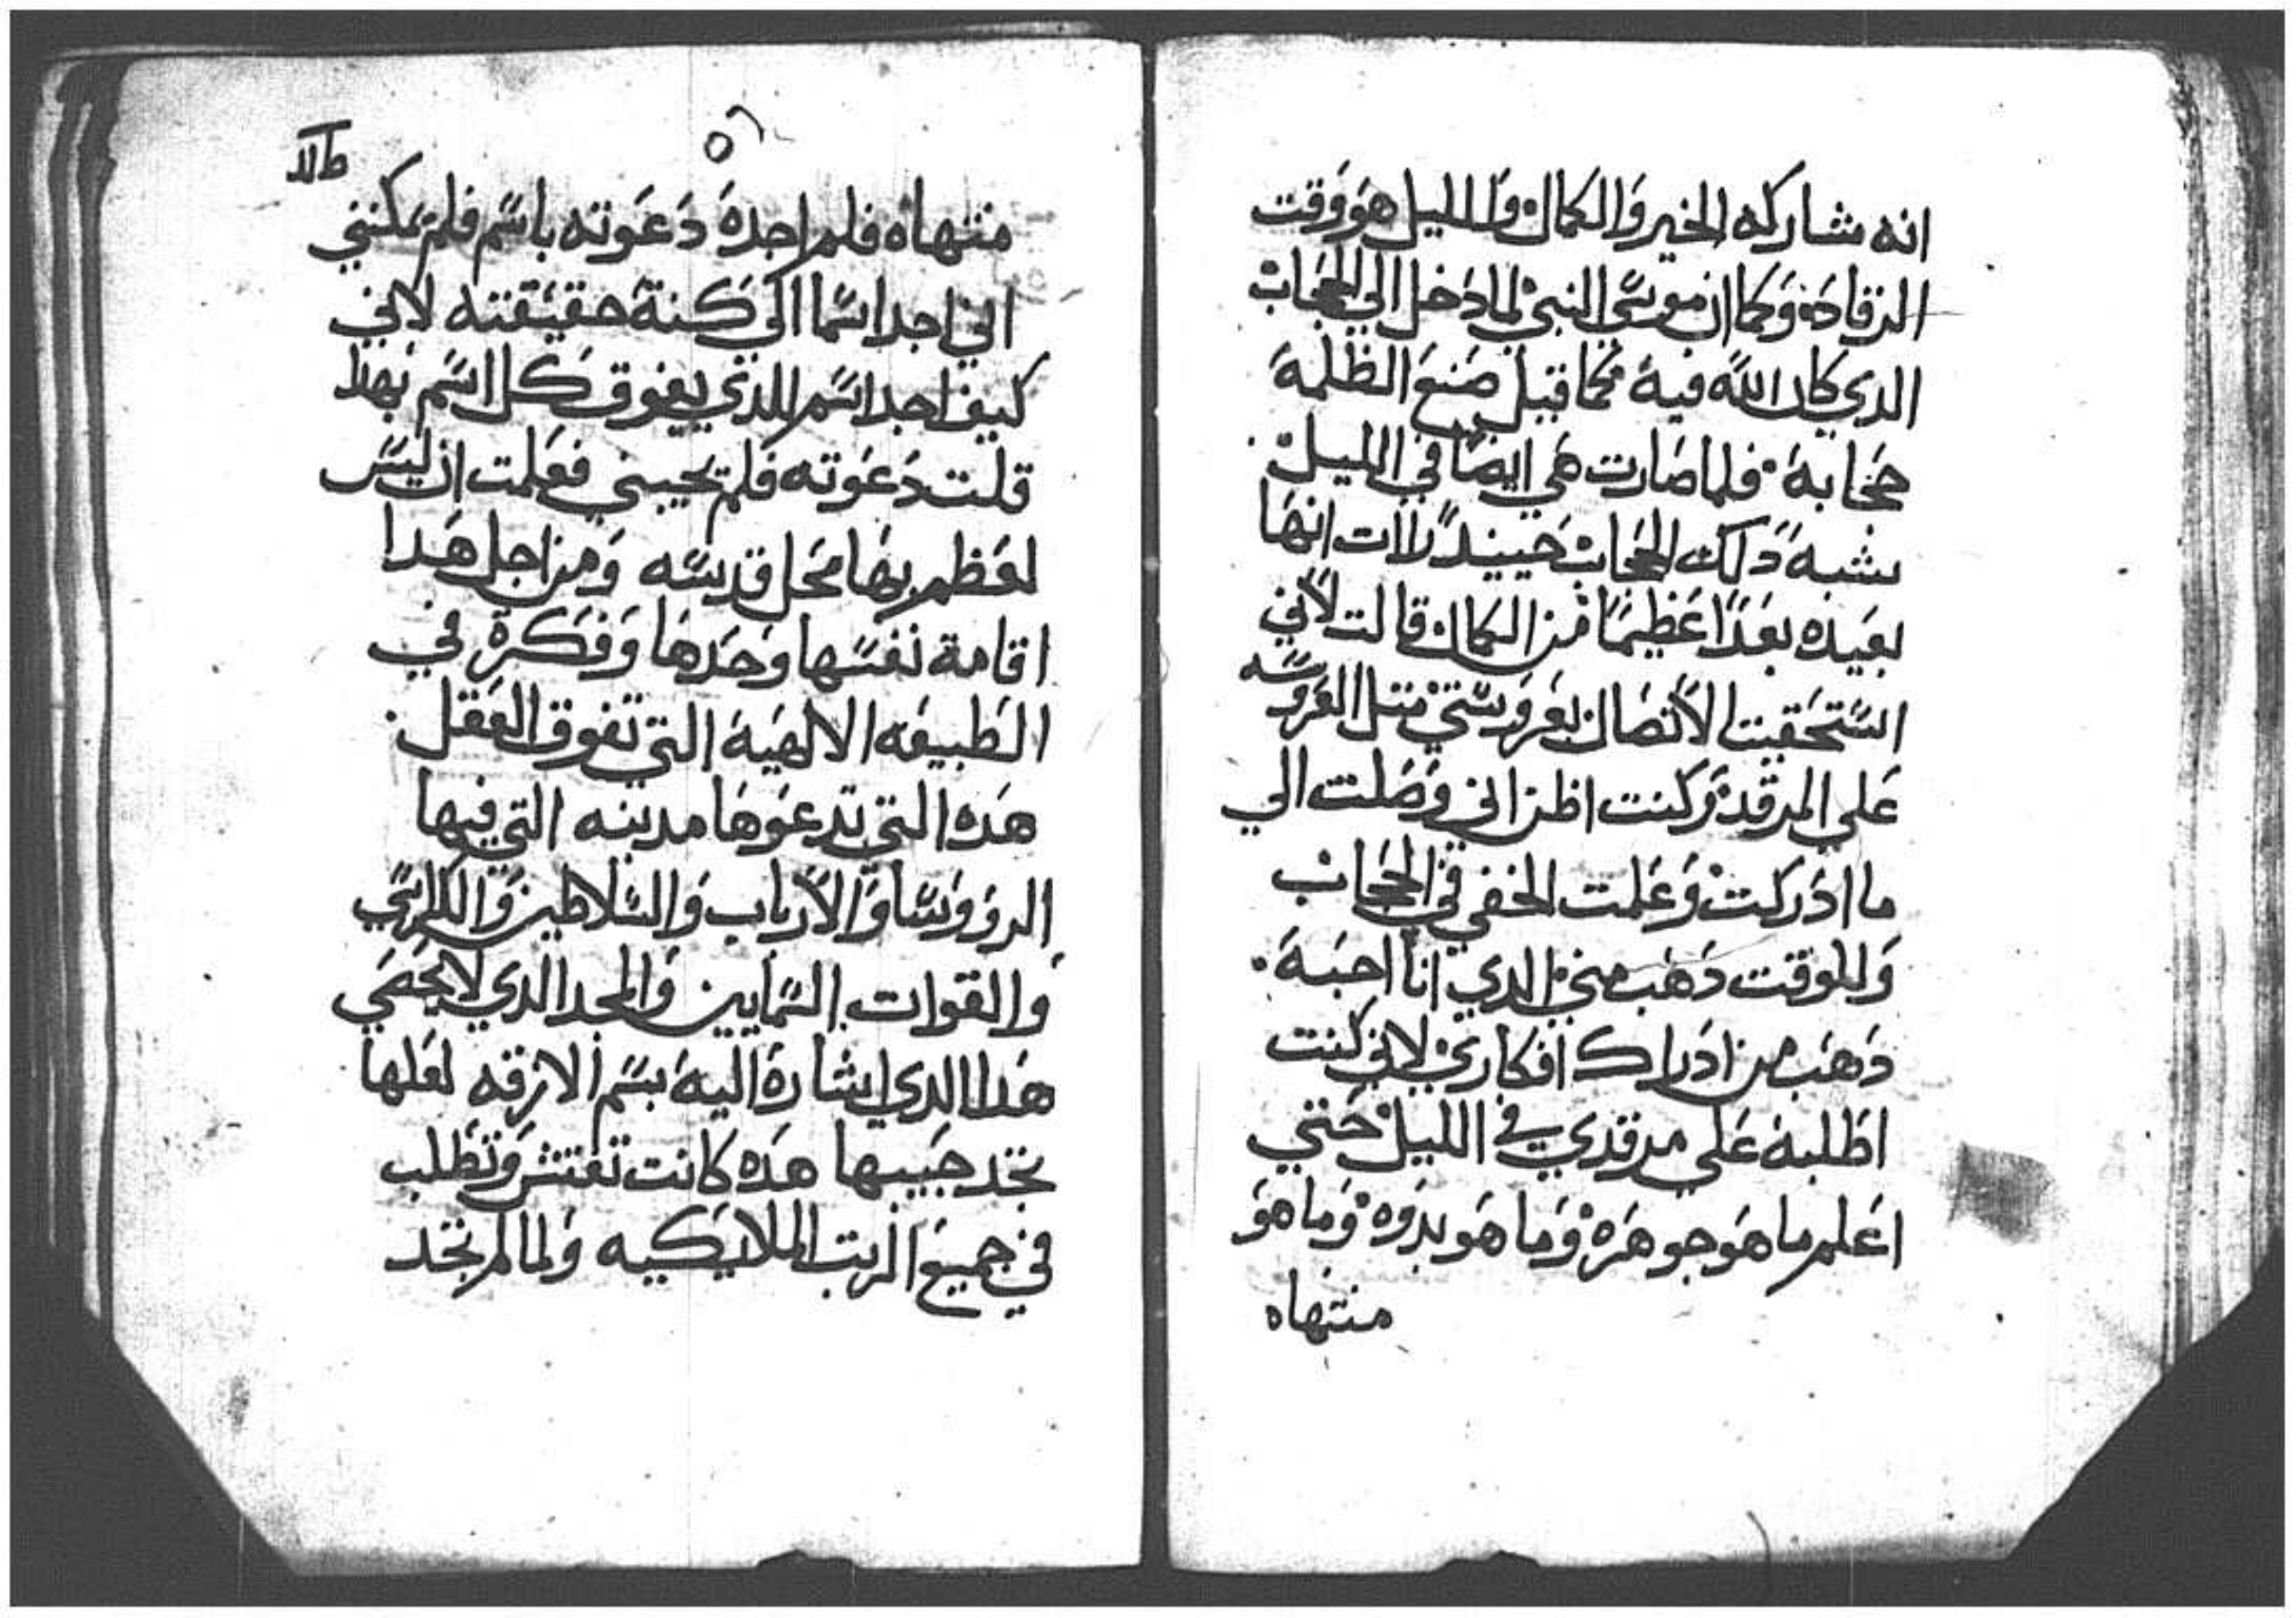 انه مشاركه الخير والكمال والليل هو وقت
الرقاده وكما ان موسي النبي لما دخل الي الحجاب
الدي كان الله فيه كما قيل صنع الظلمة
حجابه فلما صارت هي ايضا في الليل
بشبه دلك الحجاب حينيد رات انها
بعيده بعدا عظيما من الكمال قالت لاني
استحقيت الاتصال بعروستي متل العروسه
علي المرقد وكنت اظن اني وصلت الي
ما ادركت وعلمت الخفي في الحجاب
والوقت دهب مني الدي انا احبه
دهب من ادراك افكاري لاني كنت
اطلبه علي مرقدي في الليل حتي
اعلم ما هو جوهره وما هو بدوه وما هو
منتهاه
٥٦
منتهاه فلم اجده دعوته باسم فلم يمكنني
اني اجد اسما الي كنة حقيقته لاني
كيف اجد اسم الدي يفوق كل اسم بهدا
قلت دعوته فلم يجيبني فعلمت ان ليس
لعظم بها محل قدسه ومن اجل هدا
اقامة نفسها وحدها وفكرة في
الطبيعه الالهية التي تفوق العقل
هده التي تدعوها مدينه التي فيها
الرووسا والارباب والسلاطين والكراسي
والقوات السمايين والمجد الدي لا يحصي
هدا الدي اشارة اليه بسم الازقه لعلها
تجد حبيبها هده كانت تفتش وتطلب
في جميع الرتب الملايكيه ولما لم تجد